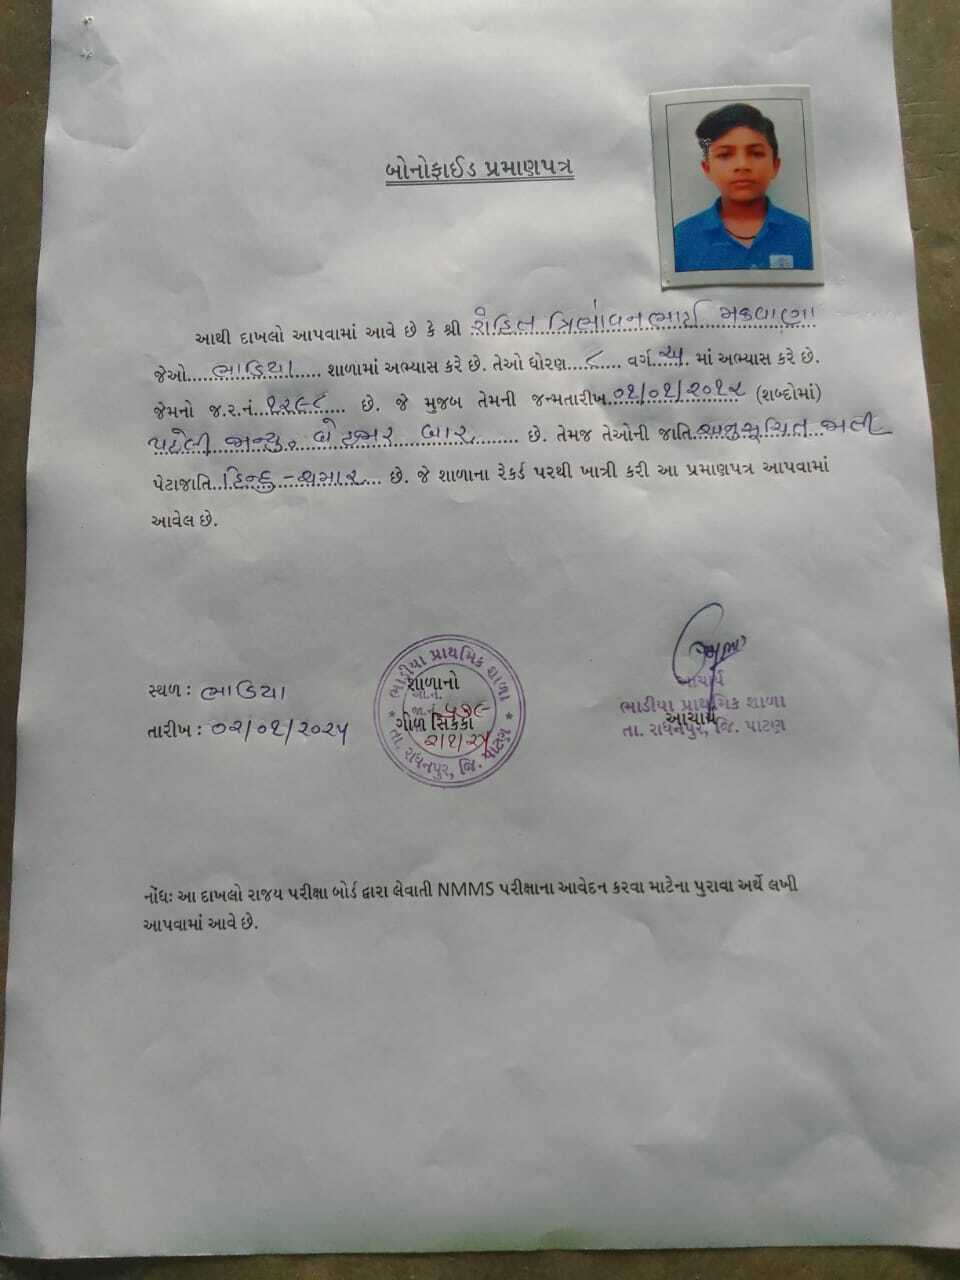 બોનોફાઈડ પ્રમાણપત્ર
આથી દાખલો આપવામાં આવે છે કે શ્રી રોહિત ત્રિભોવનભાઈ મકવાણા
જેઓ ભાડિયા શાળામાં અભ્યાસ કરે છે. તેઓ ધોરણ ૮ વર્ગ અ માં અભ્યાસ કરે છે.
જેમનો જ.ર.નં. ૧૨૯૮ છે. જે મુજબ તેમની જન્મતારીખ ૦૧/૦૧/૨૦૧૨ (શબ્દોમાં)
પહેલી જાન્યુ. બે હજાર બાર છે. તેમજ તેઓની જાતિ અનુસૂચિત જાતી
પેટાજાતિ હિન્દુ - ચમાર છે. જે શાળાના રેકર્ડ પરથી ખાત્રી કરી આ પ્રમાણપત્ર આપવામાં
આવેલ છે.
સ્થળ : ભાડિયા
તારીખ : ૦૨/૦૧/૨૦૨૫
ભાડીયા પ્રાથમિક શાળા
શાળાનો
જા.નં. ૫૭૯
ગોળ સિક્કો
૨/૧/૨૫
તા. રાધનપુર, જિ. પાટણ
આચાર્ય
ભાડીયા પ્રાથમિક શાળા
આચાર્ય
તા. રાધનપુર, જિ. પાટણ
નોંધ: આ દાખલો રાજય પરીક્ષા બોર્ડ દ્વારા લેવાતી NMMS પરીક્ષાના આવેદન કરવા માટેના પુરાવા અર્થે લખી
આપવામાં આવે છે.